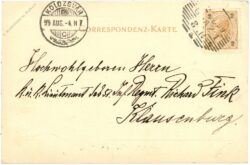 KOLOZSVÁR
99 AUG. -4. N 7
CORRESPONDENZ-KARTE.
Hochwohlgeboren Herrn
k. u. k. Lieutenant Richard Fink
Klausenburg